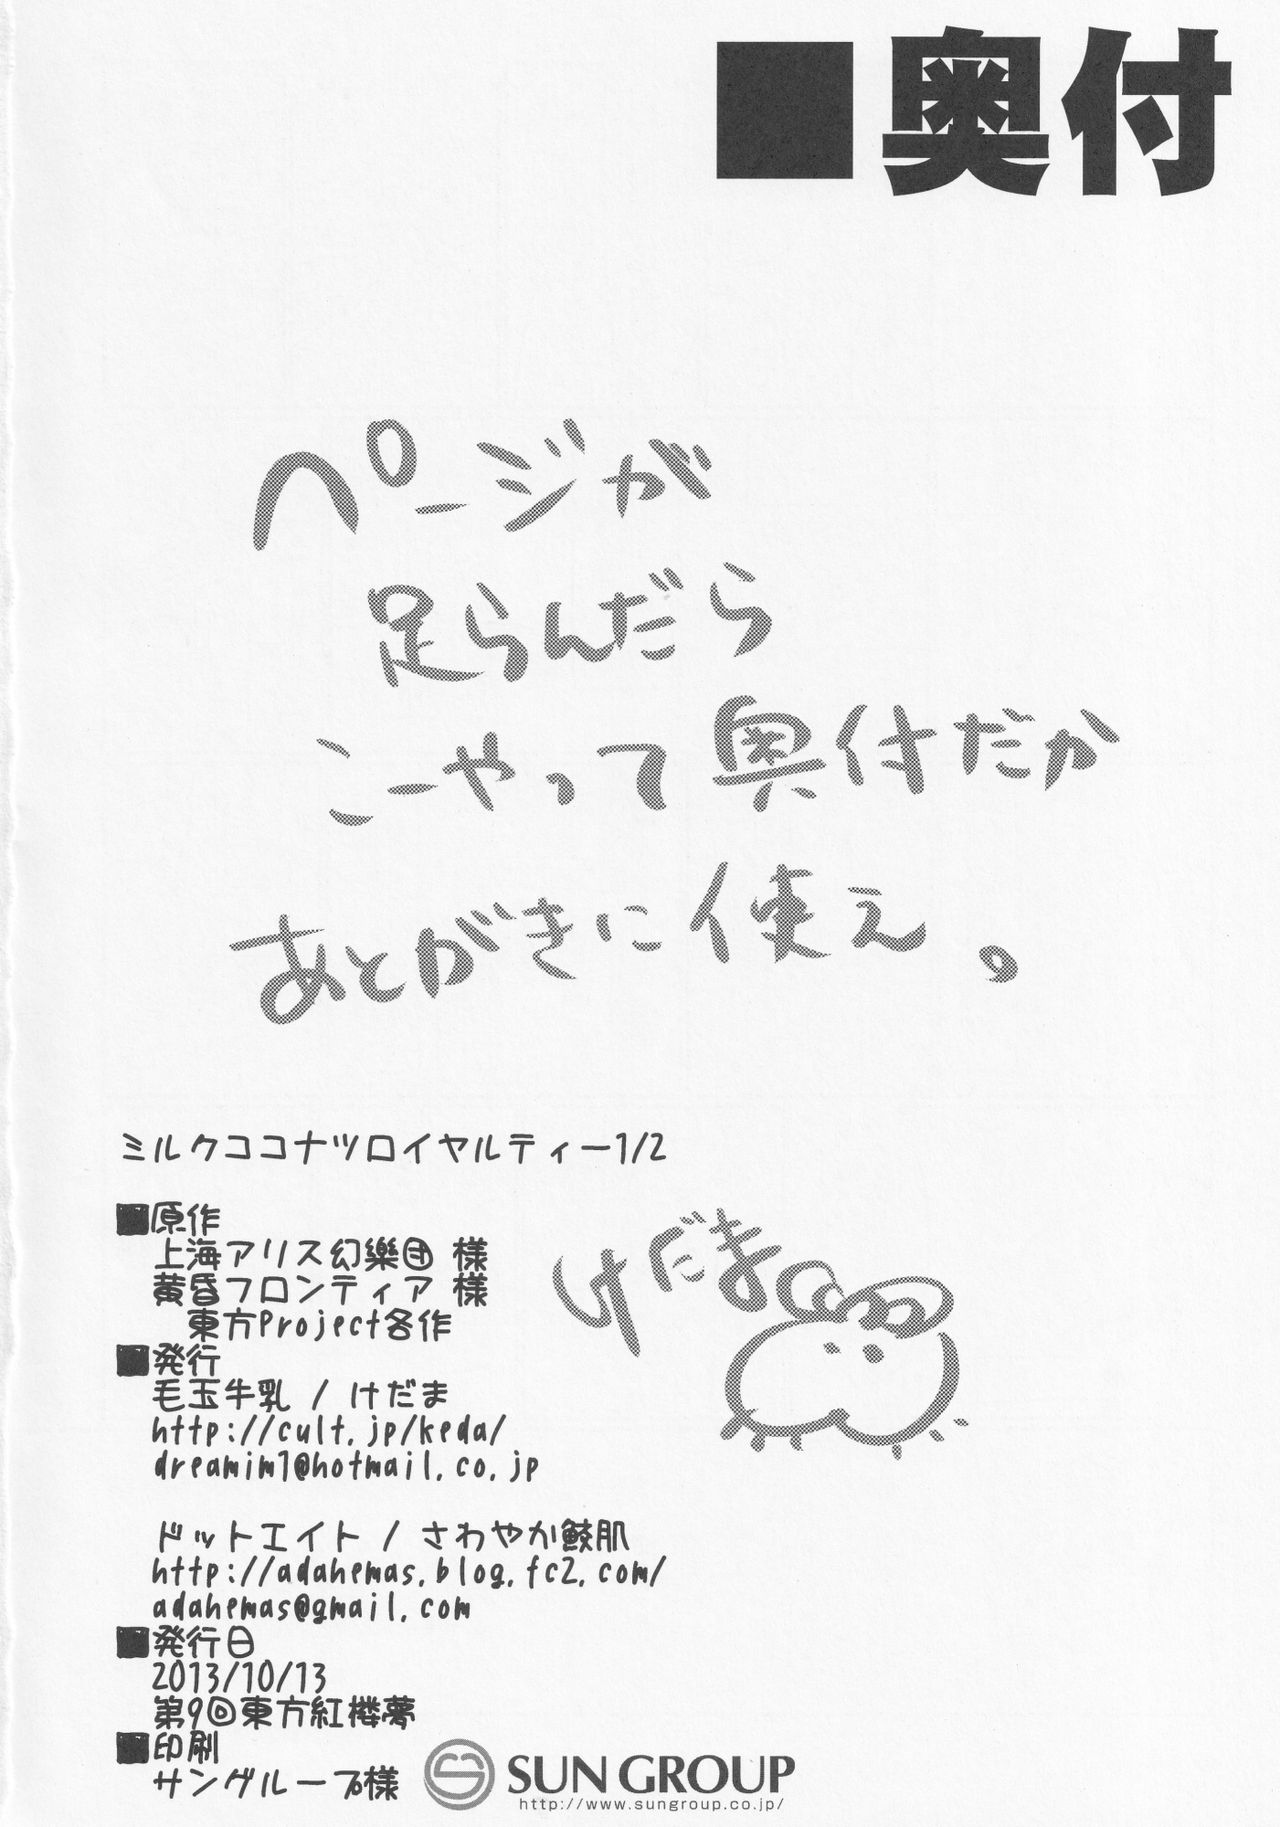 ■奥付
ページが
足らんだら
こーやって奥付だか
あとがきに使え。
ミルクココナツロイヤルティー1/2
■原作
上海アリス幻樂団 様
黄昏フロンティア 様
東方Project各作
■発行
毛玉牛乳 / けだま
http://cult.jp/keda/
dreamim1@hotmail.co.jp
ドットエイト / さわやか鮫肌
http://adahemas.blog.fc2.com/
adahemas@gmail.com
■発行日
2013/10/13
第9回東方紅楼夢
■印刷
サングループ様
けだま
SUN GROUP
http://www.sungroup.co.jp/